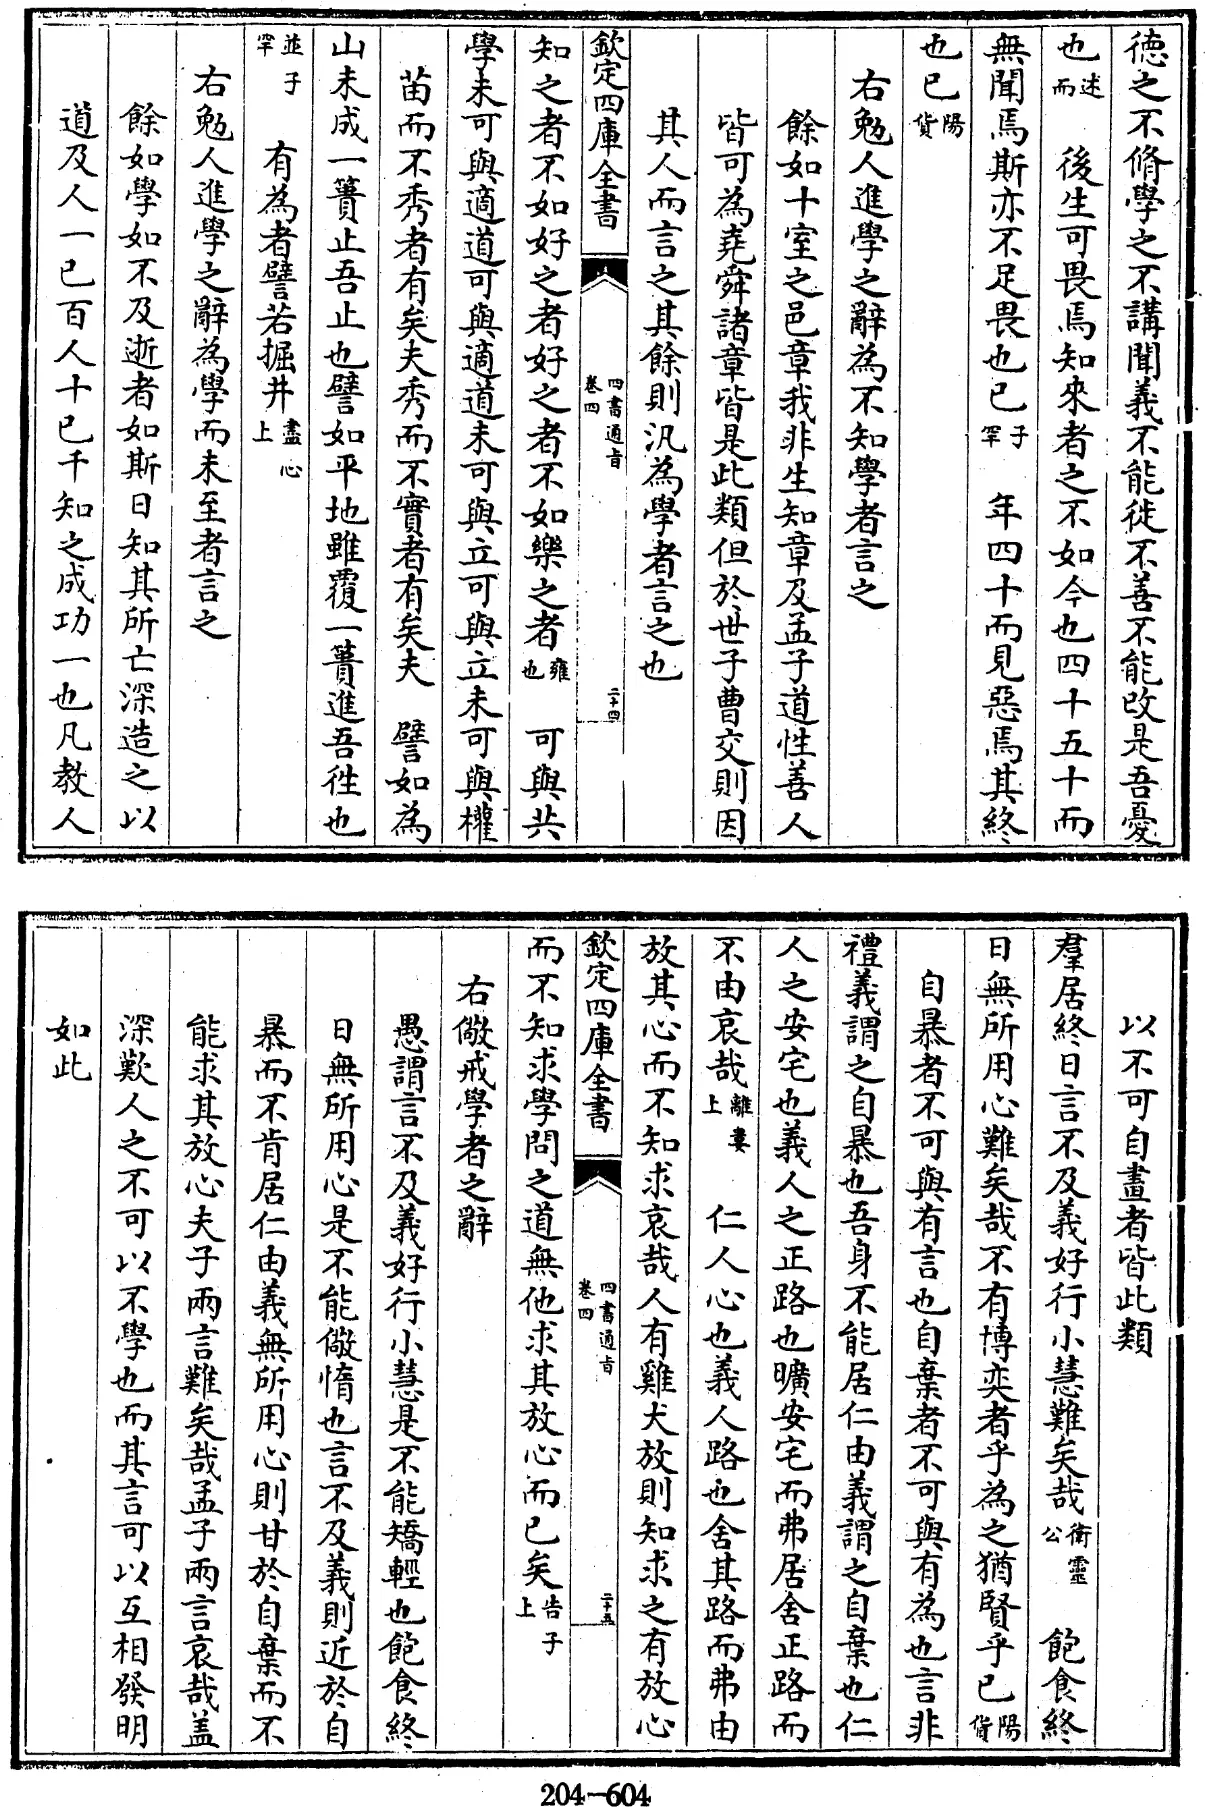 德之不脩學之不講聞義不能徙不善不能改是吾憂
也述而　後生可畏焉知來者之不如今也四十五十而
無聞焉斯亦不足畏也已子罕　年四十而見惡焉其終
也已陽貨
右勉人進學之辭為不知學者言之
餘如十室之邑章我非生知章及孟子道性善人
皆可為堯舜諸章皆是此類但於世子曹交則因
其人而言之其餘則汎為學者言之也
欽定四庫全書　四書通旨卷四　二十四
知之者不如好之者好之者不如樂之者雍也　可與共
學未可與適道可與適道未可與立可與立未可與權
苗而不秀者有矣夫秀而不實者有矣夫　譬如為
山未成一簣止吾止也譬如平地雖覆一簣進吾徃也
並子罕　有為者譬若掘井盡心上
右勉人進學之辭為學而未至者言之
餘如學如不及逝者如斯日知其所亡深造之以
道及人一己百人十己千知之成功一也凡教人
以不可自畫者皆此類
羣居終日言不及義好行小慧難矣哉衛靈公　飽食終
日無所用心難矣哉不有博奕者乎為之猶賢乎已陽貨
自暴者不可與有言也自棄者不可與有為也言非
禮義謂之自暴也吾身不能居仁由義謂之自棄也仁
人之安宅也義人之正路也曠安宅而弗居舍正路而
不由哀哉離婁上　仁人心也義人路也舍其路而弗由
放其心而不知求哀哉人有雞犬放則知求之有放心
欽定四庫全書　四書通旨卷四　二十五
而不知求學問之道無他求其放心而已矣告子上
右儆戒學者之辭
愚謂言不及義好行小慧是不能矯輕也飽食終
日無所用心是不能儆惰也言不及義則近於自
暴而不肯居仁由義無所用心則甘於自棄而不
能求其放心夫子兩言難矣哉孟子兩言哀哉盖
深歎人之不可以不學也而其言可以互相發明
如此
204-604